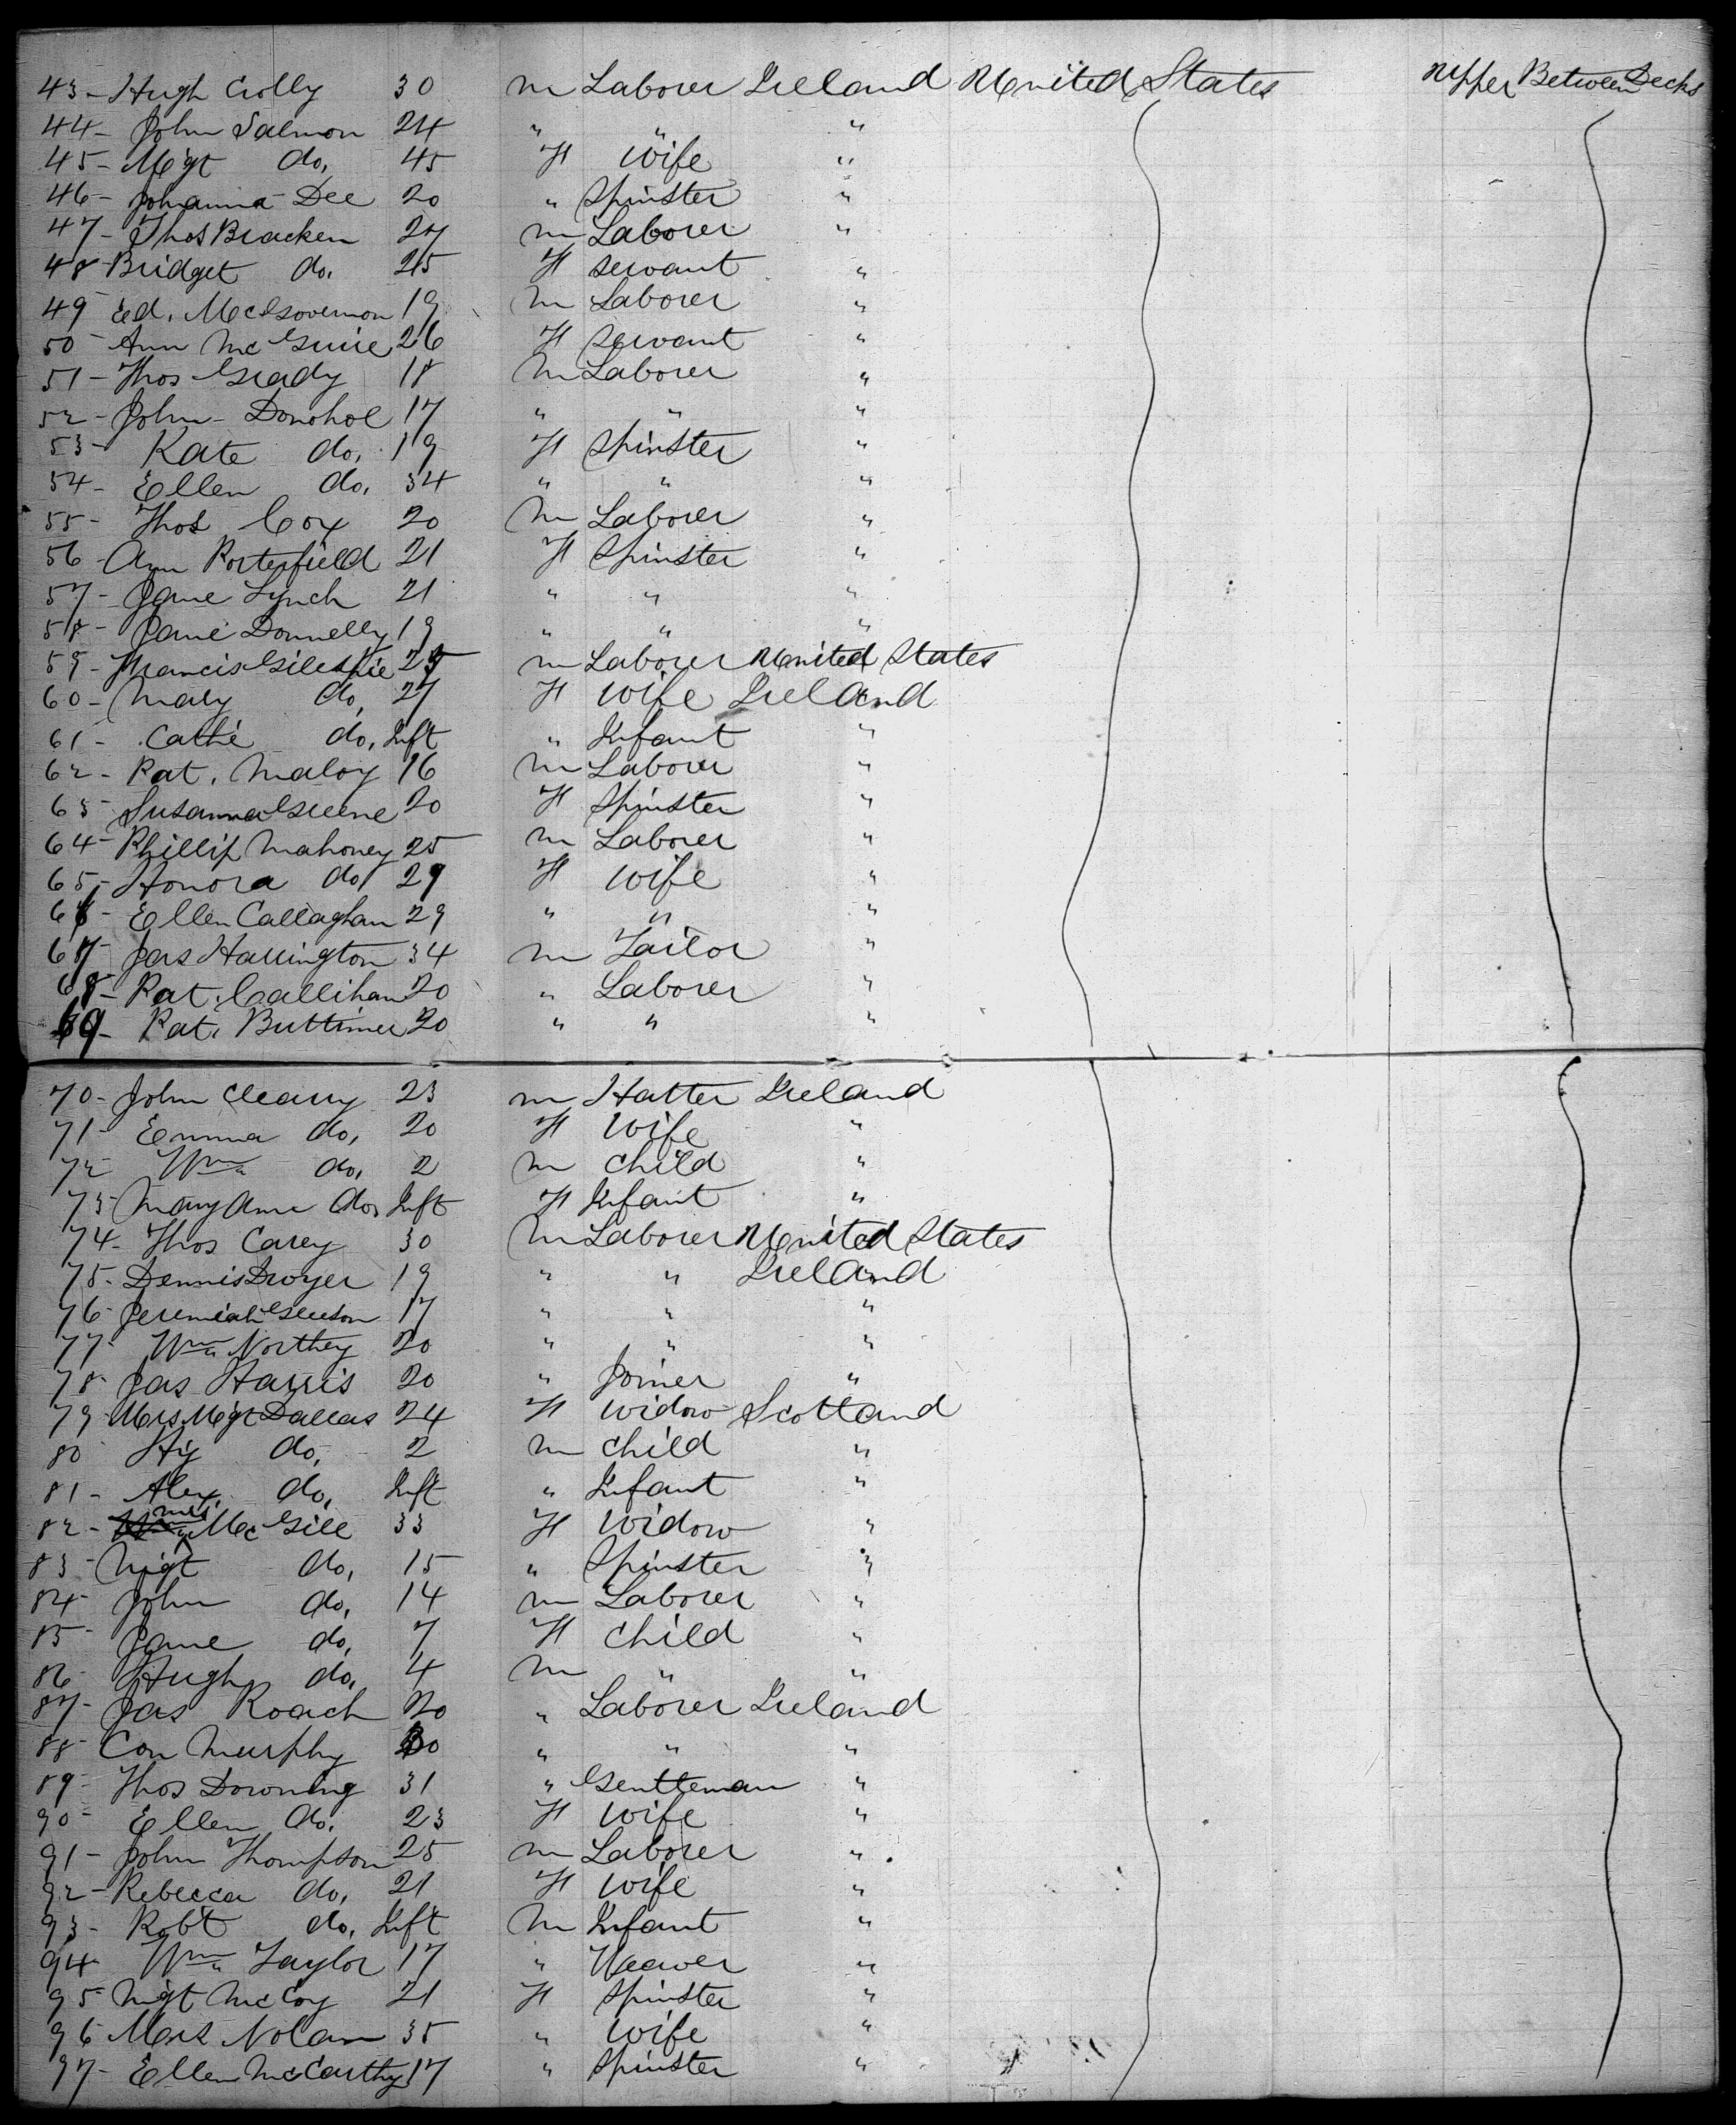 43- Hugh Crolly 30 m Laborer Ireland United States Upper Between Decks
44- John Salmon 24 " " "
45- Mgt do, 45 F Wife "
46- Johanna Dee 20 " Spinster "
47- Thos Bracken 27 m Laborer "
48 Bridget do. 25 F servant "
49 Ed. McGovernon 19 m Laborer "
50 Ann McGuire 26 F servant "
51- Thos Grady 18 m Laborer "
52- John Donohoe 17 " " "
53- Kate do, 19 F Spinster "
54- Ellen do, 34 " " "
55- Thos Cox 20 m Laborer "
56 Ann Porterfield 21 F Spinster "
57- Jane Lynch 21 " " "
58- Jane Donnelly 19 " " "
59- Francis Gillespie 25 m Laborer United States
60- Mary do, 27 F Wife Ireland
61- Cathe do, Inft " Infant "
62- Pat. Maloy 16 m Laborer "
63 Susanna Greene 20 F Spinster "
64- Phillip Mahoney 25 m Laborer "
65- Honora do, 29 F Wife "
66- Ellen Callaghan 29 " " "
67 Jas Harrington 34 m Tailor "
68- Pat. Callihan 20 " Laborer "
69- Pat. Buttimer 20 " " "
70- John Cleary 23 m Hatter Ireland
71- Emma do, 20 F Wife "
72 Wm do, 2 m child "
73 Mary Ann do, Inft F Infant "
74- Thos Carey 30 m Laborer United States
75- Dennis Dwyer 19 " " Ireland
76- Jeremiah Gleeson 17 " " "
77- Wm Northey 20 " " "
78- Jas Harris 20 " Joiner "
79 Mrs Mgt Dallas 24 F Widow Scotland
80 Hy do, 2 m child "
81- Alex. do, Inft " Infant "
82- Mrs McGill 33 F Widow "
83- Mgt do, 15 " Spinster "
84- John do, 14 m Laborer "
85- Jane do, 7 F child "
86- Hugh do, 4 m " "
87- Jas Roach 20 " Laborer Ireland
88- Con Murphy 30 " " "
89- Thos Downing 31 " Gentleman "
90- Ellen do. 23 F Wife "
91- John Thompson 25 m Laborer "
92- Rebecca do, 21 F Wife "
93- Robt do, Inft m Infant "
94- Wm Taylor 17 " Weaver "
95 Mgt McCoy 21 F Spinster "
96 Mrs Nolan 35 " Wife "
97- Ellen McCarthy 17 " Spinster "